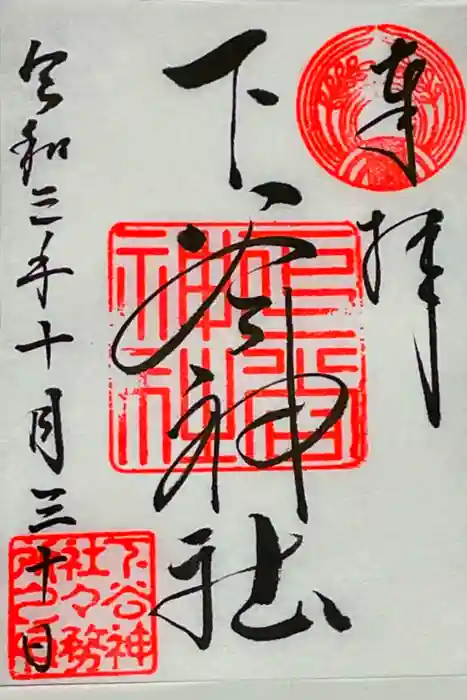 奉拝
下谷神社
下谷神社
令和三年十月三十日
下谷神社々務所之印